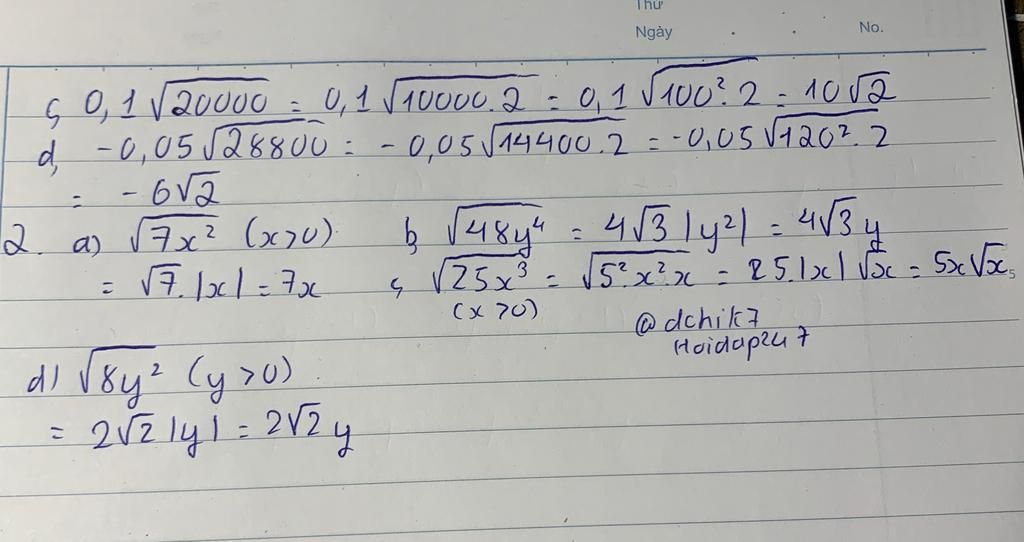 Thứ
Ngày No.
ς 0,1√20000 = 0,1√10000.2 = 0,1√100².2 = 10√2
d, -0,05√28800 = -0,05√14400.2 = -0,05√120².2
= -6√2
2. a) √7x² (x>0) b, √48y⁴ = 4√3 |y²| = 4√3 y
= √7.|x| = 7x ς √25x³ = √5².x².x = 25.|x|√x = 5x√x
(x>0)
@dchik7
Hoidap247
d) √8y² (y>0)
= 2√2 |y| = 2√2 y